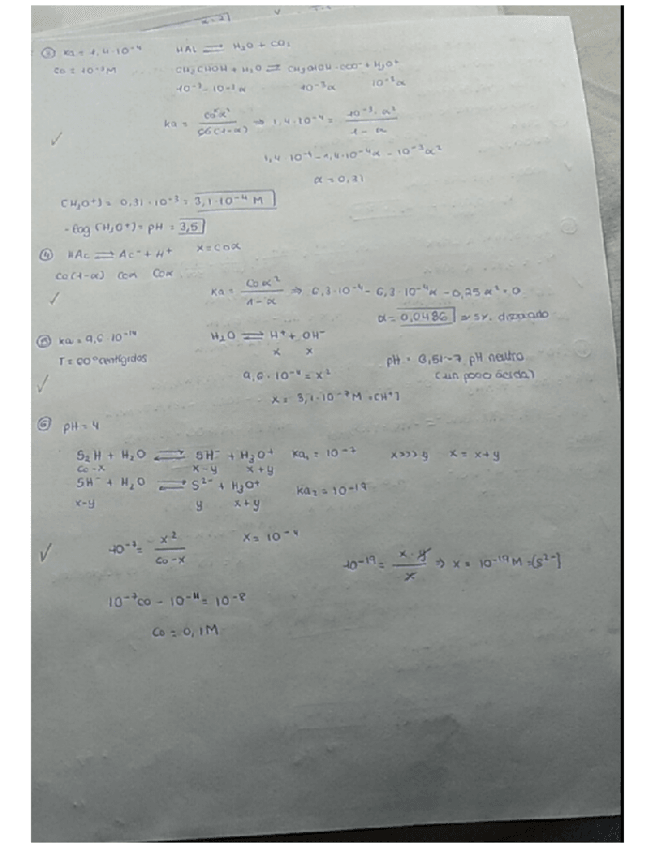 ③ Ka = 1,4·10⁻⁴ HAL ⇌ H₂O + CO₂
Co = 10⁻³M CH₃CHOH + H₂O ⇌ CH₃CHOH-COO⁻ + H₃O⁺
10⁻³-10⁻³α 10⁻³α 10⁻³α
✓ Ka = Co²α² / Co(1-α) ⇒ 1,4·10⁻⁴ = 10⁻³·α² / 1-α
1,4·10⁻⁴ - 1,4·10⁻⁴α - 10⁻³α²
α = 0,31
[H₃O⁺] = 0,31·10⁻³ = 3,1·10⁻⁴ M
-log [H₃O⁺] = pH = 3,5
④ HAc ⇌ Ac⁻ + H⁺ x = Coα
Co(1-α) Coα Coα
✓ Ka = Coα² / 1-α ⇒ 6,3·10⁻⁴ - 6,3·10⁻⁴α - 0,25α² = 0
α = 0,0486
Ka = 9,6·10⁻¹⁴ H₂O ⇌ H⁺ + OH⁻
T = 60° centígrados x x pH = 6,51~7 pH neutro
✓ 9,6·10⁻¹⁴ = x² (un poco ácida)
x = 3,1·10⁻⁷M = [H⁺]
⑥ pH = 4
S₂H + H₂O ⇌ SH⁻ + H₃O⁺ Ka₁ = 10⁻⁷ x>>>y x = x+y
Co-x x-y x+y
SH⁻ + H₂O ⇌ S²⁻ + H₃O⁺ Ka₂ = 10⁻¹⁹
x-y y x+y
✓ 10⁻⁷ = x² / Co-x x = 10⁻⁴ 10⁻¹⁹ = x·y / x ⇒ x = 10⁻¹⁹M = [S²⁻]
10⁻⁷Co - 10⁻¹¹ = 10⁻⁸
Co = 0,1M